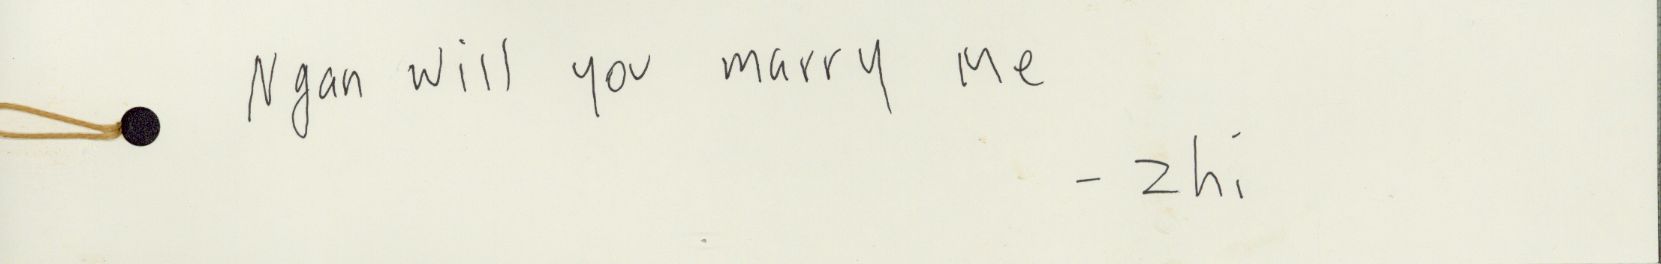 Ngan will you marry me
- Zhi